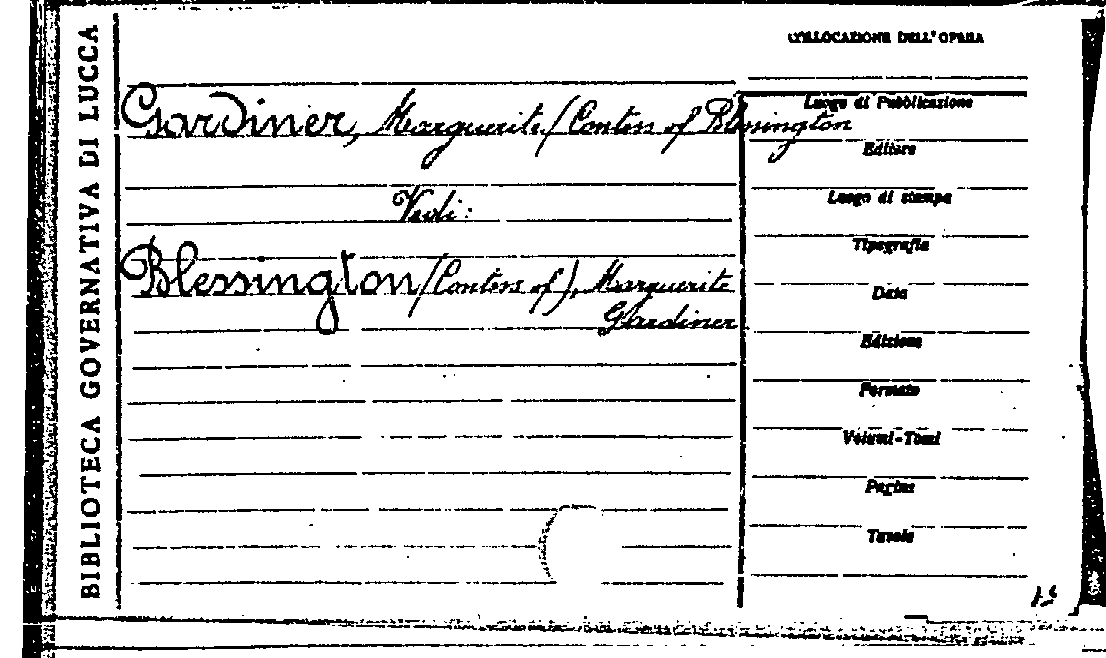 BIBLIOTECA GOVERNATIVA DI LUCCA
COLLOCAZIONE DELL'OPERA
Gardiner, Marguerite (Contess of Blessington
Vedi:
Blessington (Contess of), Marguerite
Gardiner
Luogo di Pubblicazione
Editore
Luogo di stampa
Tipografia
Data
Edizione
Formato
Volumi-Tomi
Pagine
Tavole